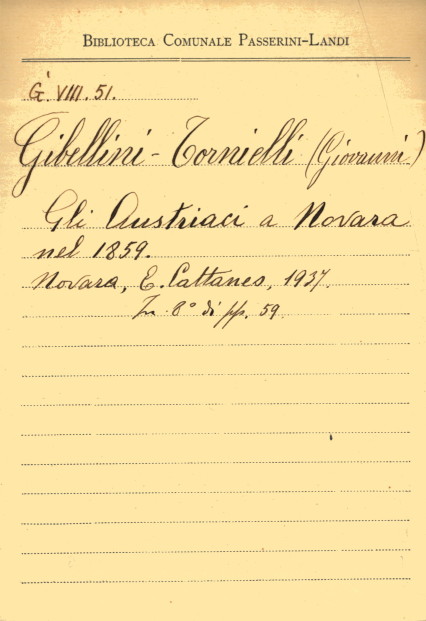 BIBLIOTECA COMUNALE PASSERINI-LANDI
G. VIII. 51.
Gibellini-Tornielli (Giovanni)
Gli Austriaci a Novara
nel 1859.
Novara, E. Cattaneo, 1937.
In 8° di pp. 59.